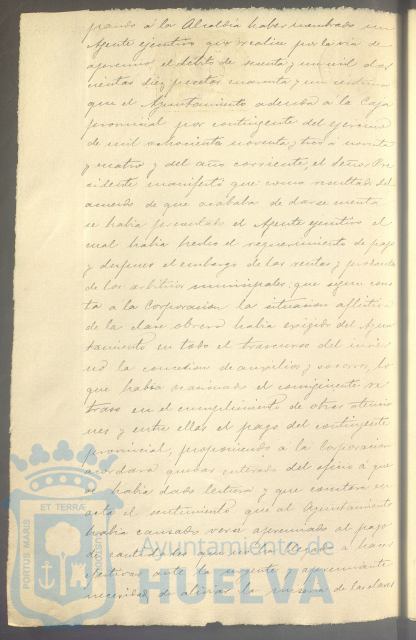 pando á la Alcaldía haber nombrado un
Agente ejecutivo que realice por la via de
apremio el débito de sesenta y un mil dos
cientas diez pesetas cuarenta y un centimos
que el Ayuntamiento adeuda á la Caja
provincial por contingente del ejercicio
de mil ochocientos noventa y tres á noventa
y cuatro y del año corriente, el Señor Pre
sidente manifestó que como resultado del
acuerdo de que acababa de darse cuenta
se habia presentado el Agente ejecutivo el
cual habia hecho el requerimiento de pago
y despues el embargo de las rentas y producto
de los arbitrios municipales: que segun cons
ta á la Corporacion la situacion aflictiva
de la clase obrera habia exigido del Ayun
tamiento en todo el trascurso del invier
no la concesion de auxilios y socorro, lo
que habia ocasionado el consiguiente re
traso en el cumplimiento de otras atencio
nes y entre ellas el pago del contingente
provincial, proponiendo á la Corporacion
acordara quedar enterada del oficio á que
se habia dado lectura y que constara en
acta el sentimiento que al Ayuntamiento
habia causado verse apremiado al pago
de cantidades que no ha llegado á hacer
efectivas ante la urgente y apremiante
necesidad de aliviar la miseria de las clases
PORTUS MARIS ET TERRAE CUSTODIA
Ayuntamiento de
HUELVA